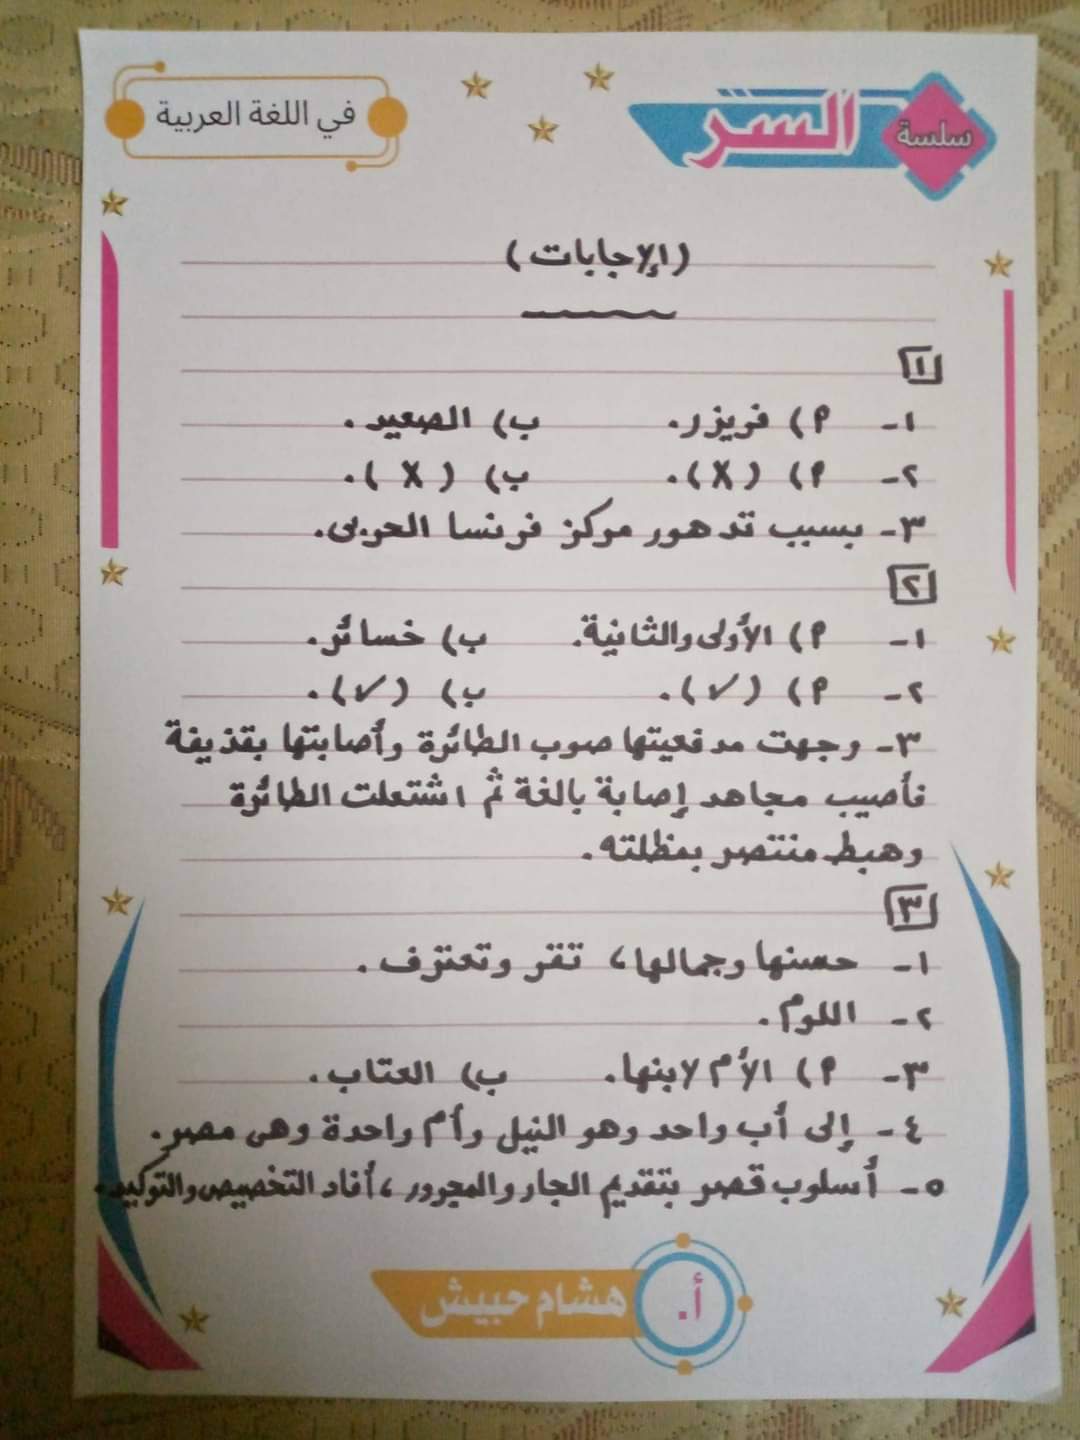 سلسة السر
في اللغة العربية
(الإجابات)
١
١- أ) فريزر. ب) الصعيد.
٢- أ) (X). ب) (X).
٣- بسبب تدهور مركز فرنسا الحربى.
٢
١- أ) الأولى والثانية. ب) خسائر.
٢- أ) (✓). ب) (✓).
٣- وجهت مدفعيتها صوب الطائرة وأصابتها بقذيفة
فأصيب مجاهد إصابة بالغة ثم اشتعلت الطائرة
وهبط منتصر بمظلته.
٣
١- حسنها وجمالها، تقر وتعترف.
٢- اللوم.
٣- أ) الأم لابنها. ب) العتاب.
٤- إلى أب واحد وهو النيل وأم واحدة وهى مصر.
٥- أسلوب قصر بتقديم الجار والمجرور، أفاد التخصيص والتوكيد.
أ. هشام حبيش